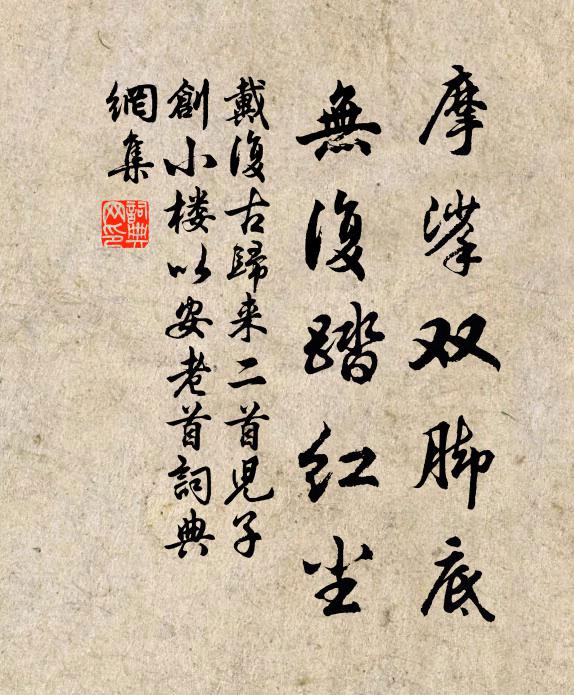 摩挲双脚底
無復踏红尘
戴復古歸来二首児子
創小楼以安老首詞典
網集
詞典网印